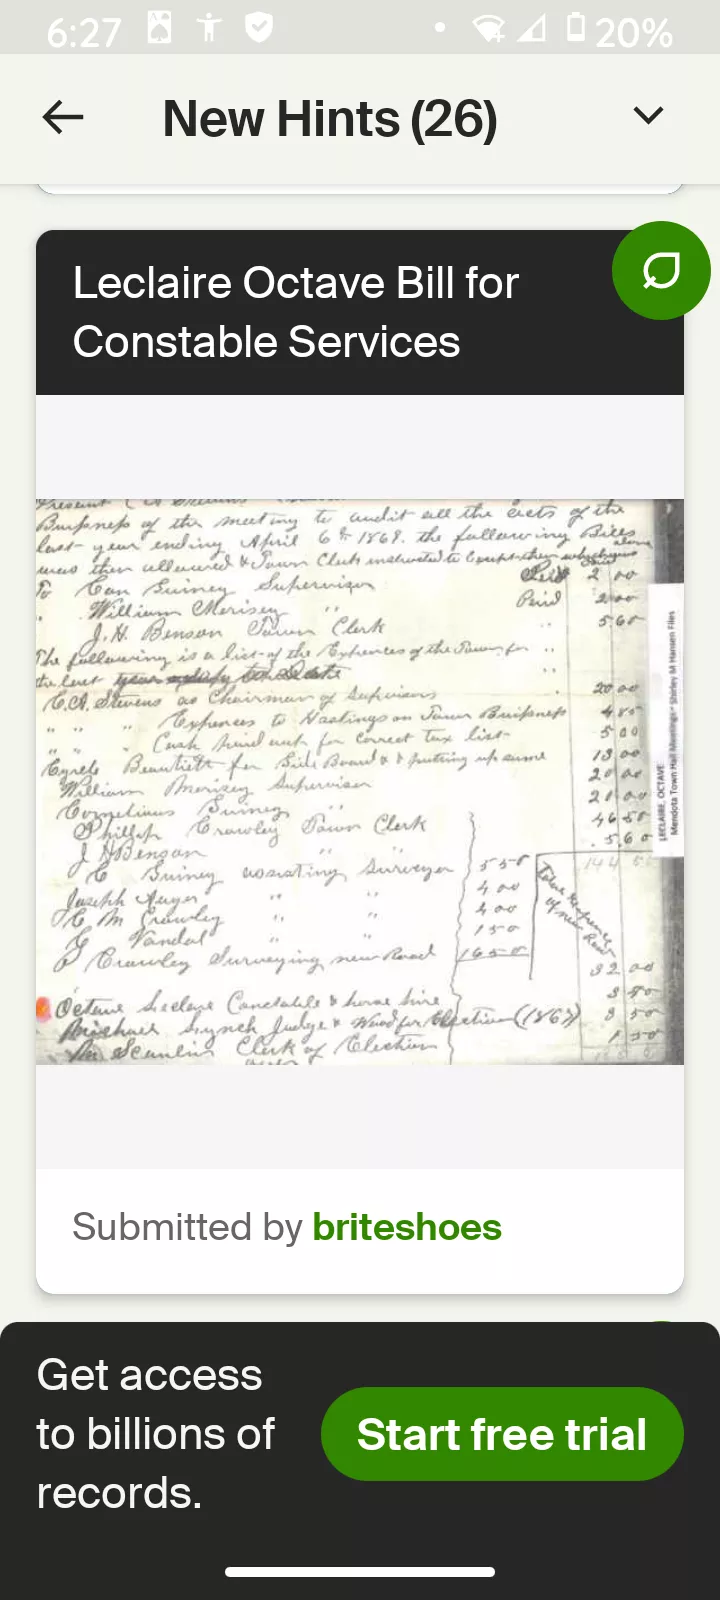 6:27
20%
New Hints (26)
Leclaire Octave Bill for
Constable Services
Present
Business of the meeting to audit all the accts of the
last year ending April 6th 1869. the following Bills
was then allowed & Town Clerk instructed to
To Con Guiney Supervisor Paid 2 00
William Morisey " Paid 2 00
J. H. Benson Town Clerk " 5.60
The following is a list of the Expences of the Town for "
the last "
C.A. Stevens as Chairman of Supervisors 20 00
" " " Expences to Hastings on Town Buisness 4 85
" " " Cash paid out for correct tax list 5 00
Beaudette for Bill Board & putting up same 13 00
William Morisey Supervisor 20 00
Cornelious Guiney " 20 00
Phillip Crawley Town Clerk 46 50
J H Benson " " 5.60
C Guiney assisting Surveyor 5 50 144
Joseph Auger " " 4 00
C M Crawley " " 4 00
Vandal " " 1 50
P Crawley Surveying new Road 16 50
Total Expence
of new Road
32 00
Octave Leclare Constable & horse hire 3 50
Michael Lynch Judge & Wood for Election (1867) 3 50
Wm Scanlin Clerk of Election 1 50
LECLAIRE, OCTAVE
Mendota Town Hall Meetings - Shirley M Hansen Files
Submitted by briteshoes
Get access
to billions of
records.
Start free trial